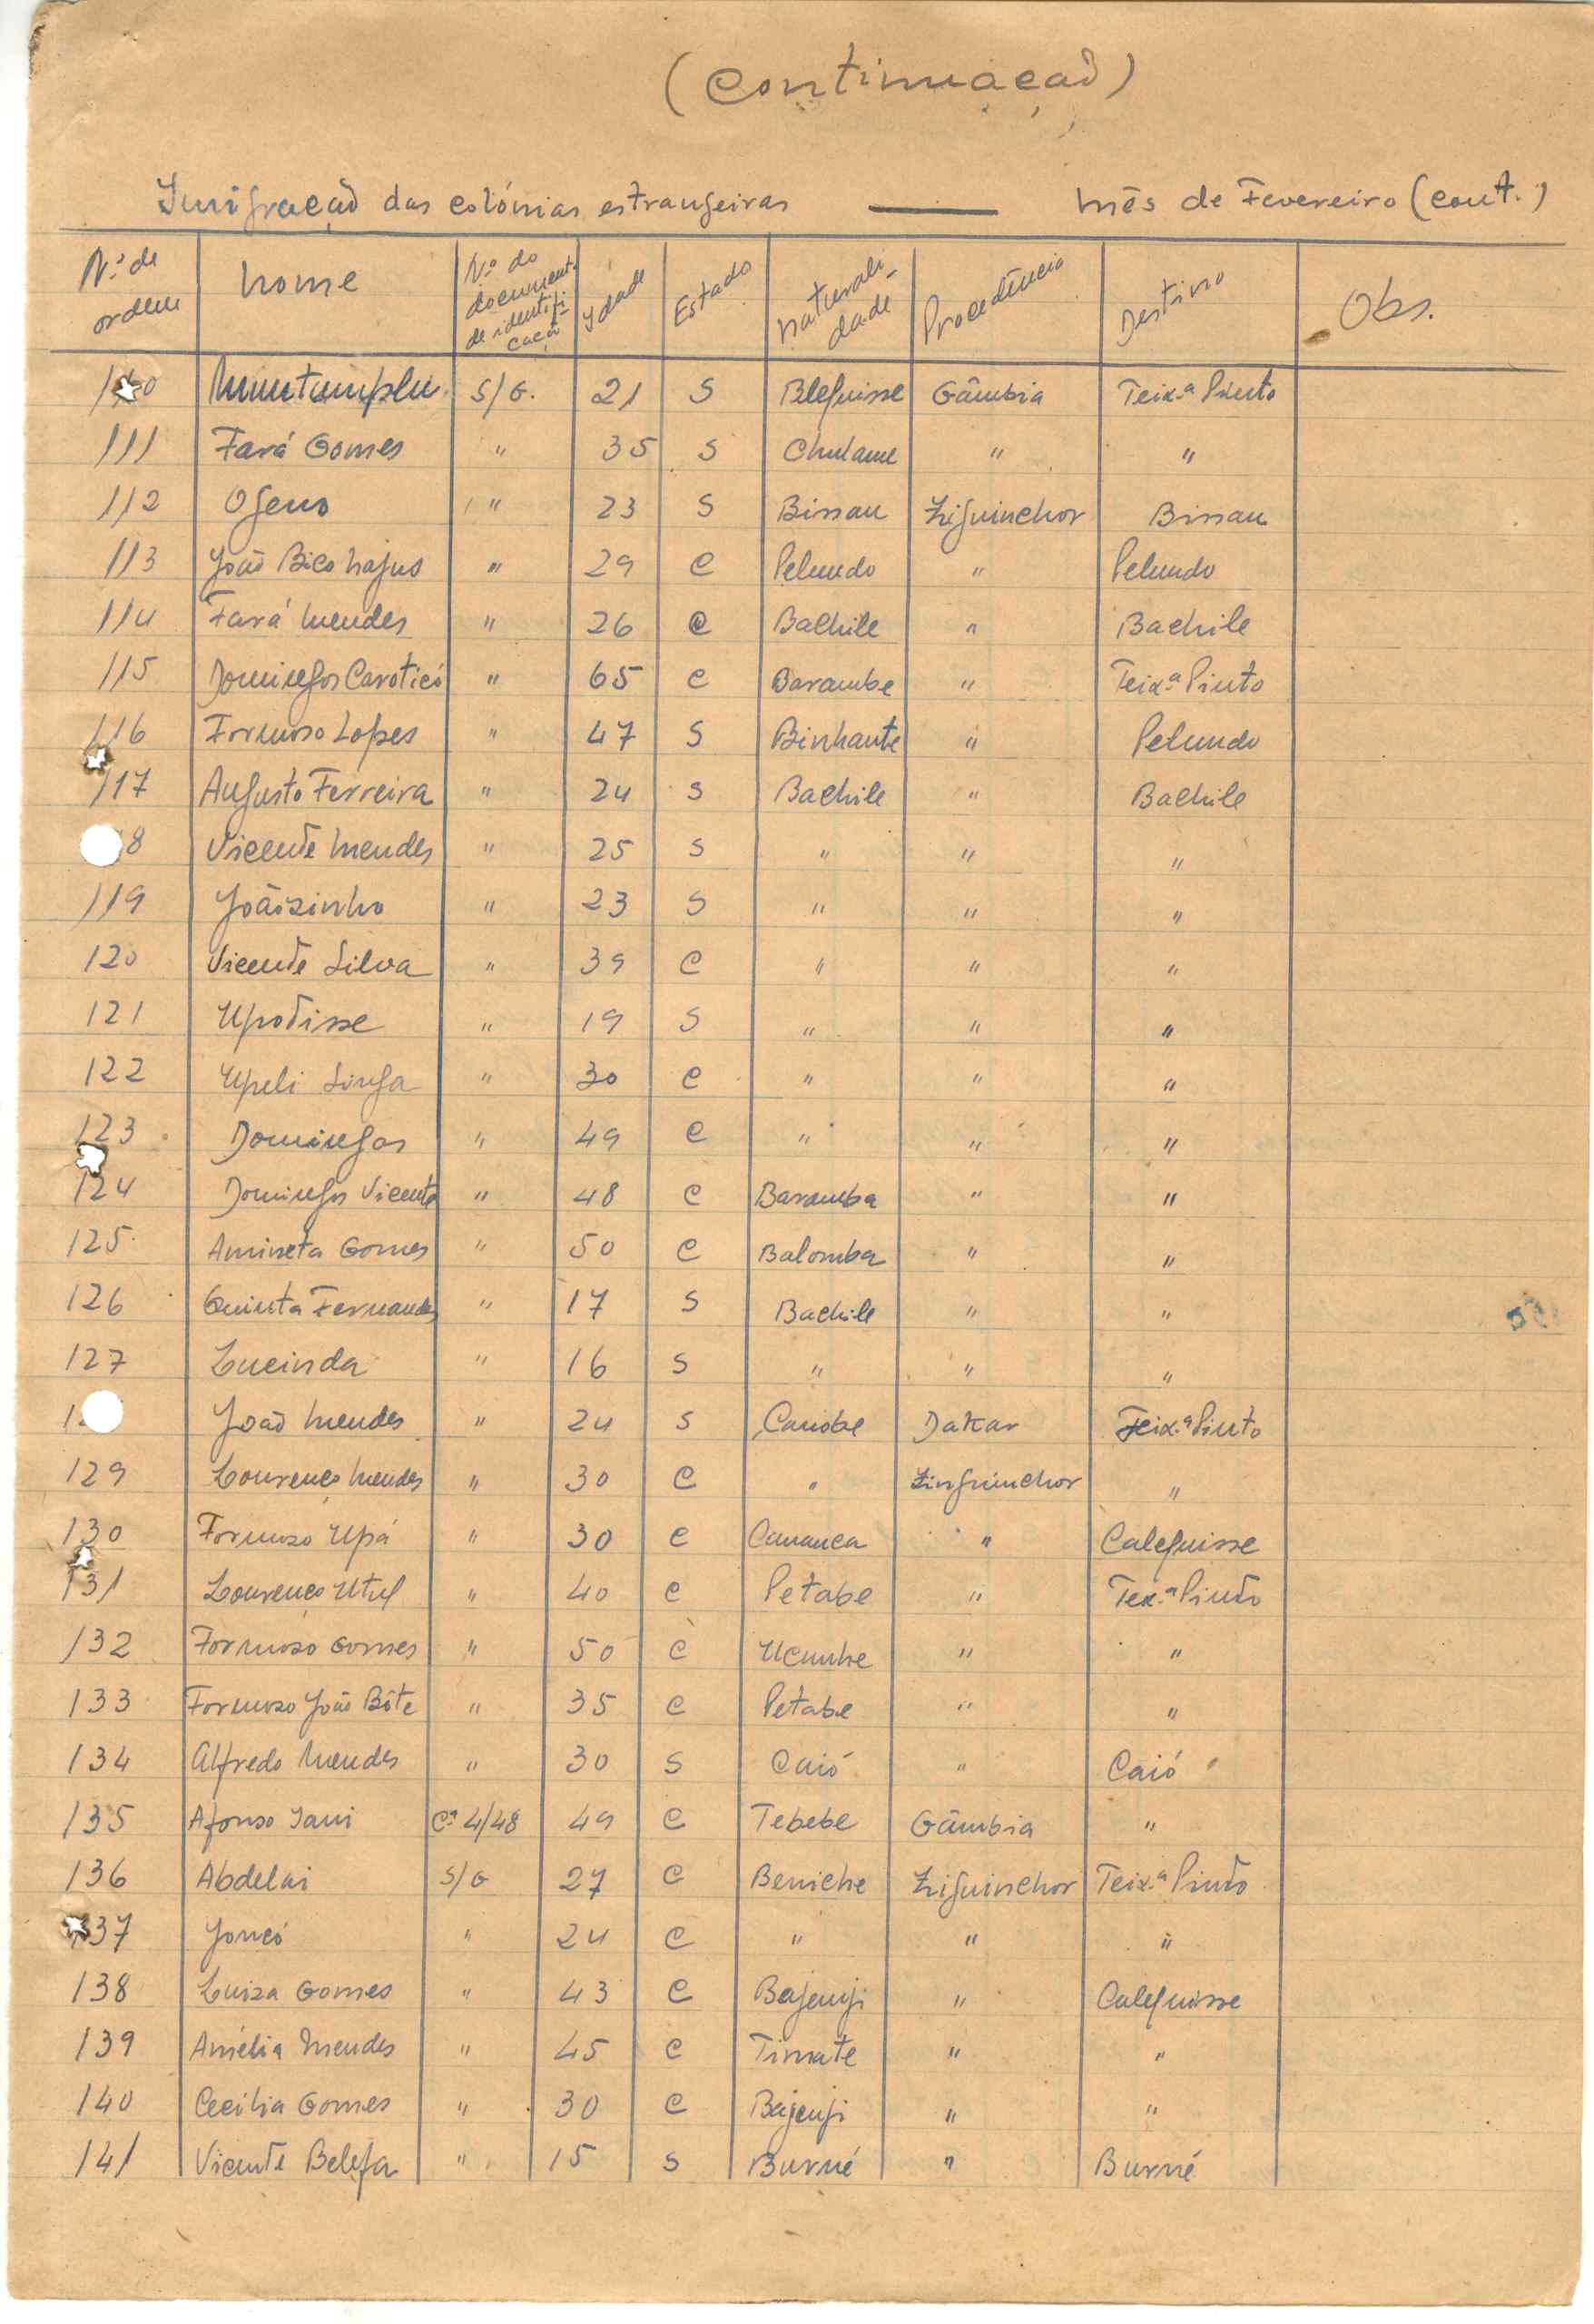 (Continuação)
Imigração das colónias estrangeiras — Mês de Fevereiro (cont.)
Nº de ordem Nome Nº do document. de identificação Idade Estado Naturalidade Procedência Destino Obs.
S/G. 21 S Gâmbia Teixª Pinto
111 Fará Gomes " 35 S Chulame " "
112 Ogeno " 23 S Bissau Ziguinchor Bissau
113 João Bico Najus " 29 C Pelundo " Pelundo
114 Fará Mendes " 26 C Bachile " Bachile
115 Domingos Caroticó " 65 C Barambe " Teixª Pinto
116 Formoso Lopes " 47 S Binhante " Pelundo
117 Augusto Ferreira " 24 S Bachile " Bachile
8 Vicente Mendes " 25 S " " "
119 Joãozinho " 23 S " " "
120 Vicente Silva " 39 C " " "
121 Upotisse " 19 S " " "
122 Upeli Singa " 30 C " " "
123 Domingos " 49 C " " "
124 Domingos Vicente " 48 C Baramba " "
125 Amineta Gomes " 50 C Balomba " "
126 Quinta Fernandes " 17 S Bachile " "
127 Lucinda " 16 S " " "
João Mendes " 24 S Canobe Dakar Teixª Pinto
129 Lourenço Mendes " 30 C " Zinguinchor "
130 Formozo Upá " 30 C Cananca " Calequisse
131 Lourenço Utul " 40 C Petabe " Texª Pinto
132 Formozo Gomes " 50 C Ucunhe " "
133 Formozo João Bôte " 35 C Petabe " "
134 Alfredo Mendes " 30 S Caió " Caió
135 Afonso Iani Cª 4/48 49 C Tebebe Gâmbia "
136 Abdelai S/G 27 C Beniche Ziguinchor Teixª Pinto
137 Joncó " 24 C " " "
138 Luiza Gomes " 43 C Bajenji " Calequisse
139 Amélia Mendes " 45 C Timate " "
140 Cecília Gomes " 30 C Bajenji " "
141 Vicente Belefa " 15 S Burné " Burné